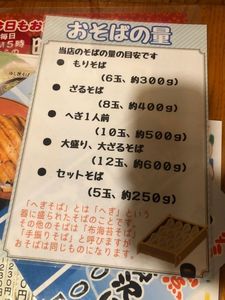 おそばの量
当店のそばの量の目安です
● もりそば
(6玉、約300g)
● ざるそば
(8玉、約400g)
● へぎ1人前
(10玉、約500g)
● 大盛り、大ざるそば
(12玉、約600g)
● セットそば
(5玉、約250g)
「へぎそば」とは「へぎ」という
器に盛られたそばのことです。
その他のそばは「布海苔そば」
「手振りそば」と呼びますが
おそばは同じものになります。
今日もお
毎日
5時